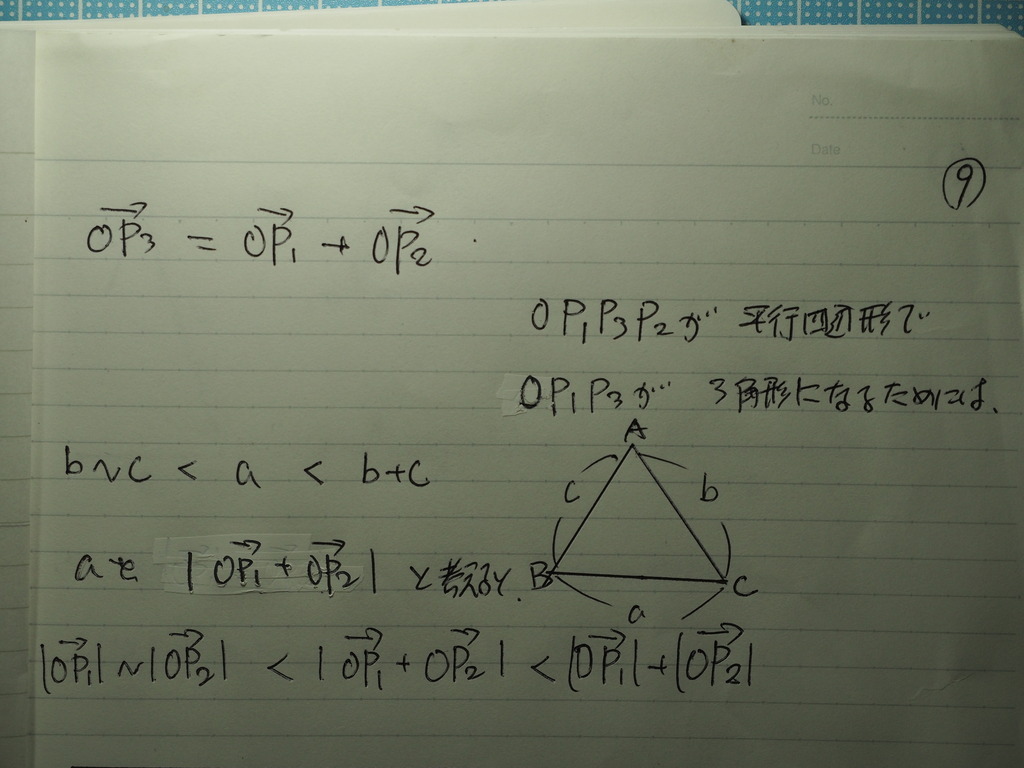 No.
Date
⑨
→OP₃ = →OP₁ + →OP₂
OP₁P₃P₂が 平行四辺形で
OP₁P₃が 3角形になるためには、
b~c < a < b+c
A
c b
B C
a
aを |→OP₁ + →OP₂| と考えると、
|→OP₁|~|→OP₂| < |→OP₁ + →OP₂| < |→OP₁|+|→OP₂|